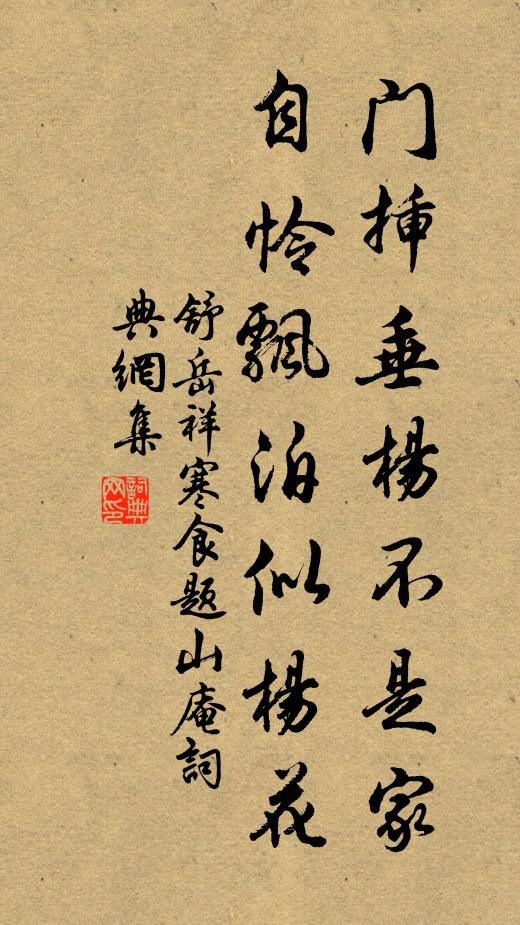 门插垂杨不是家
自怜飘泊似杨花
舒岳祥寒食题山庵词
典網集
詞典網印